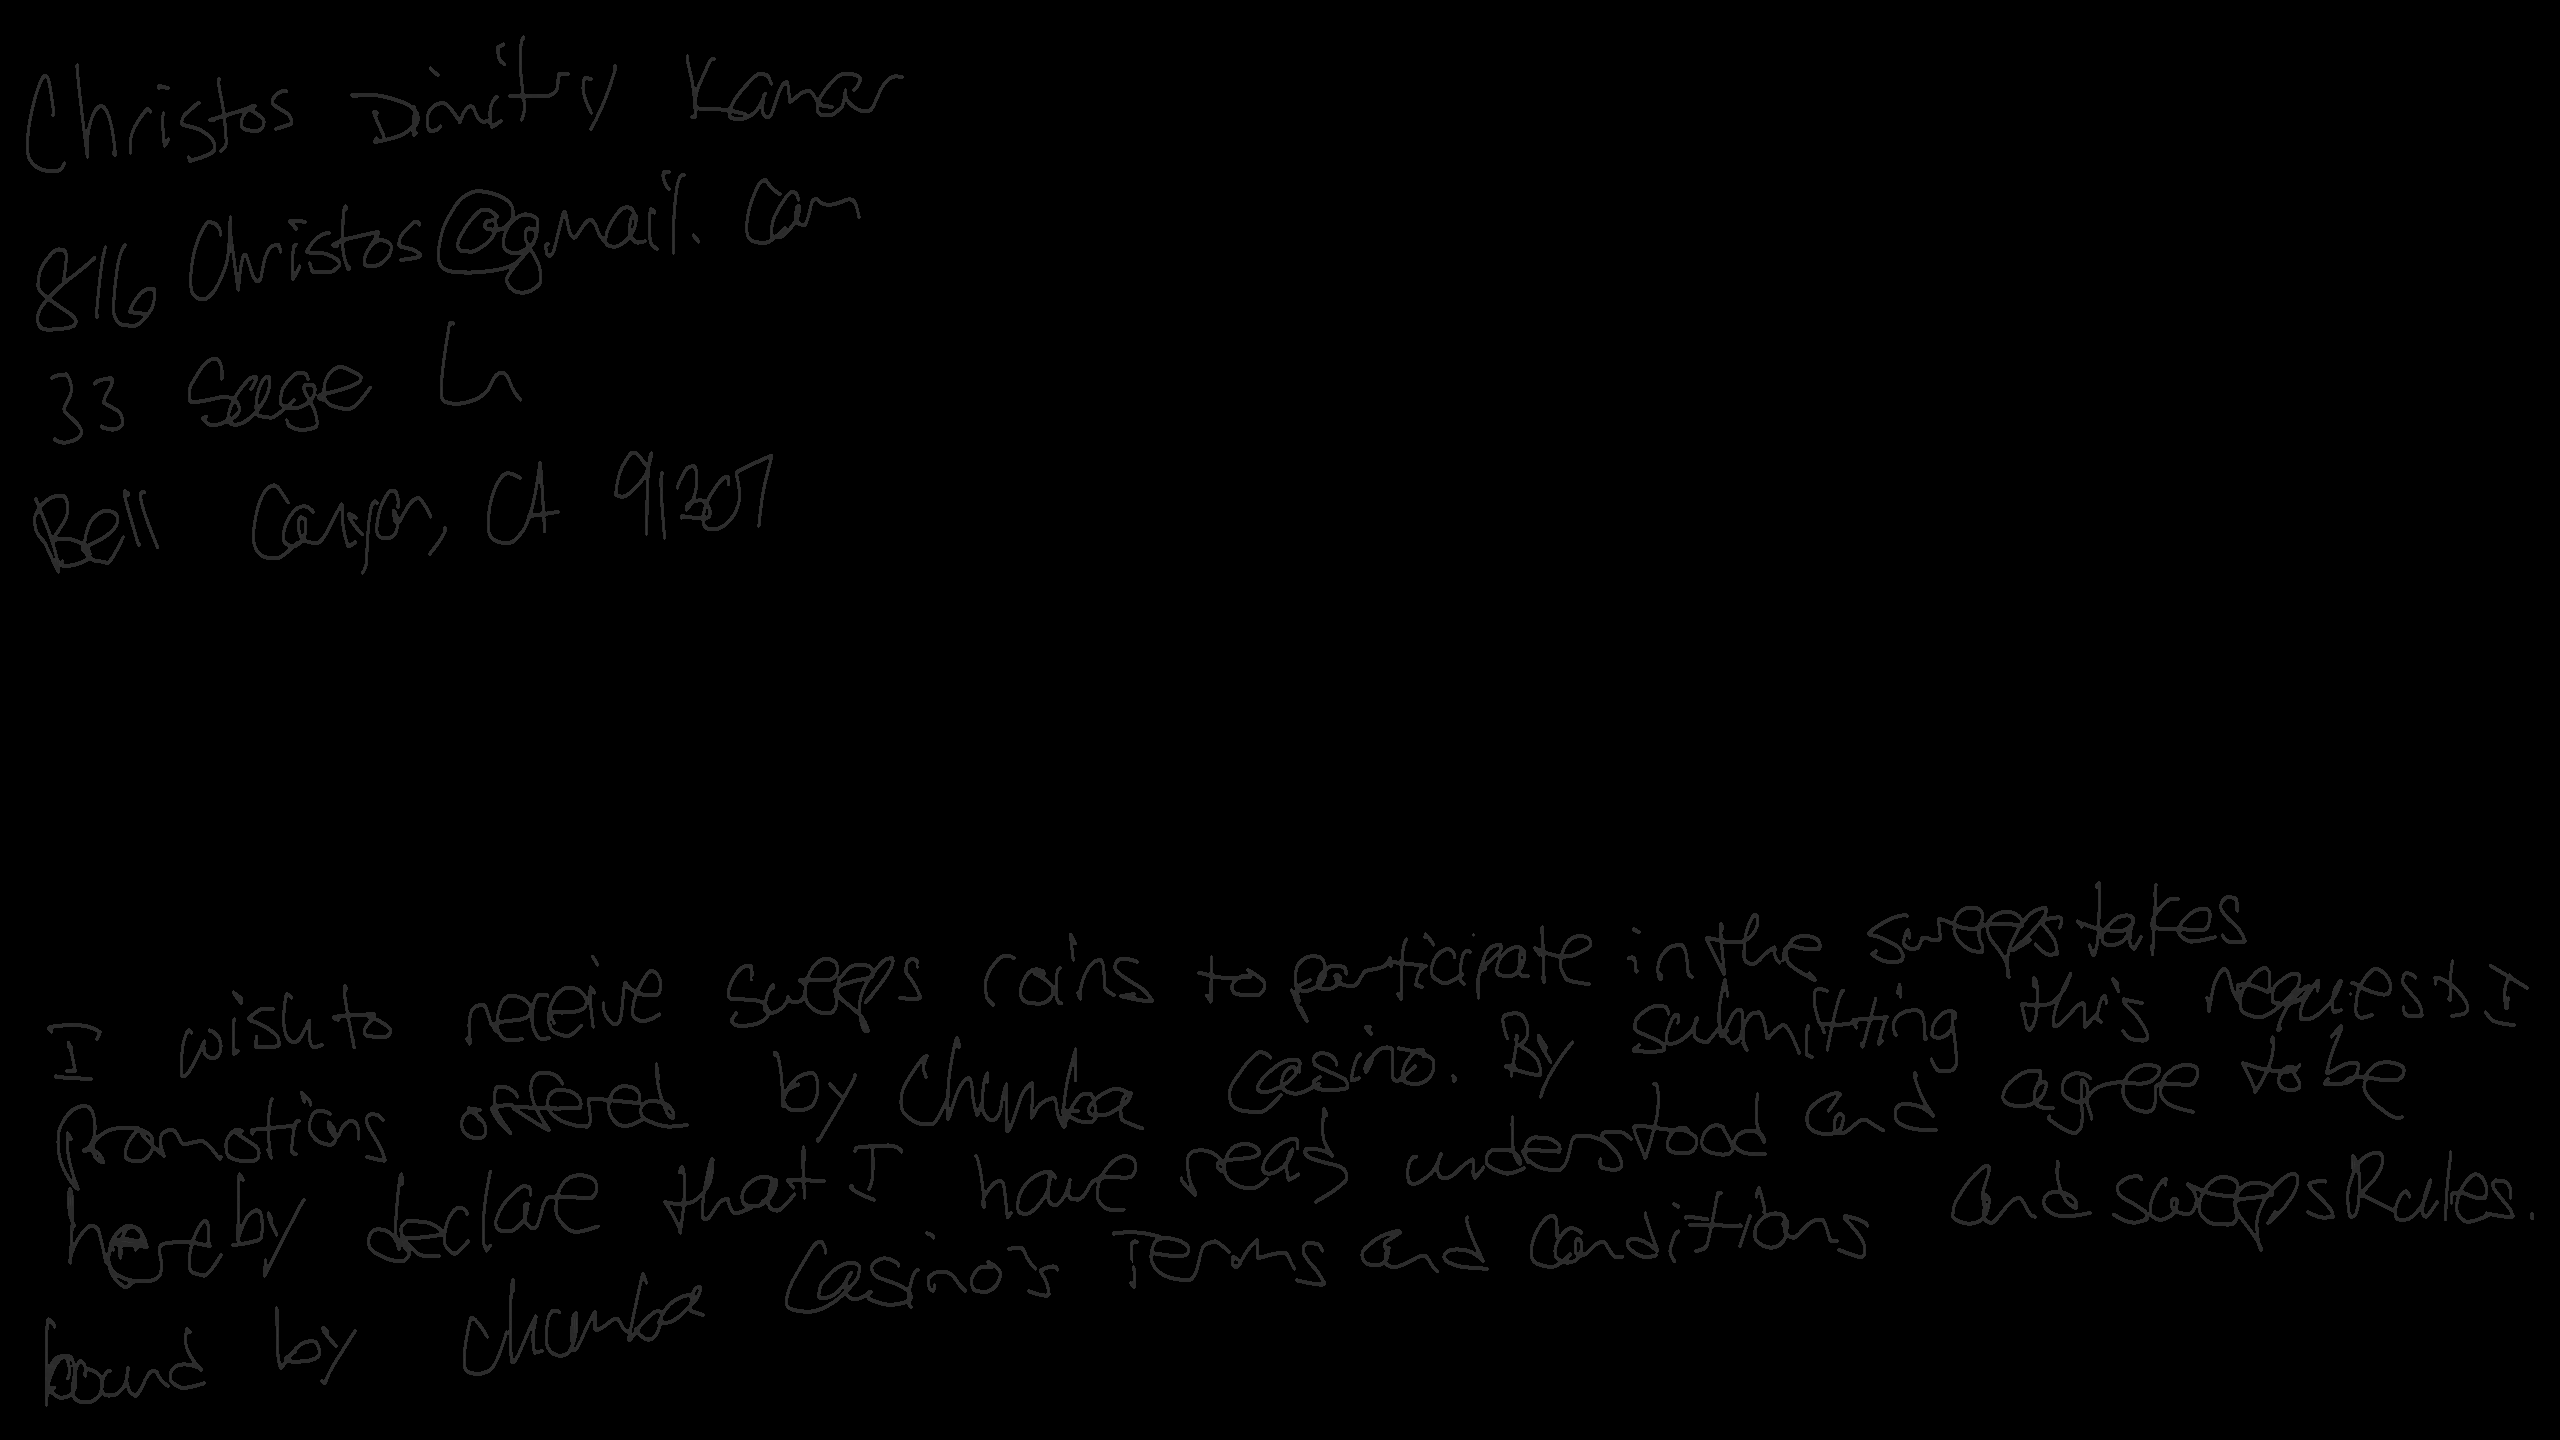 Christos Dimitry Kamar
816 Christos@gmail.com
33 Sage Ln
Bell Canyon, CA 91307
I wish to receive sweeps coins to participate in the sweepstakes
promotions offered by Chumba Casino. By submitting this request I
hereby declare that I have read understood and agree to be
bound by Chumba Casino's Terms and Conditions and Sweeps Rules.